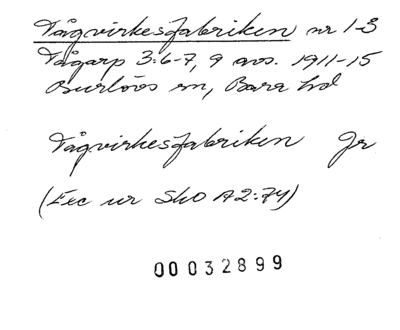 Tågvirkesfabriken nr 1-3
Tågarp 3:6-7, 9 avs. 1911-15
Burlövs sn, Bara hd
Tågvirkesfabriken Jr
(Exc ur Sko A2:74)
00032899